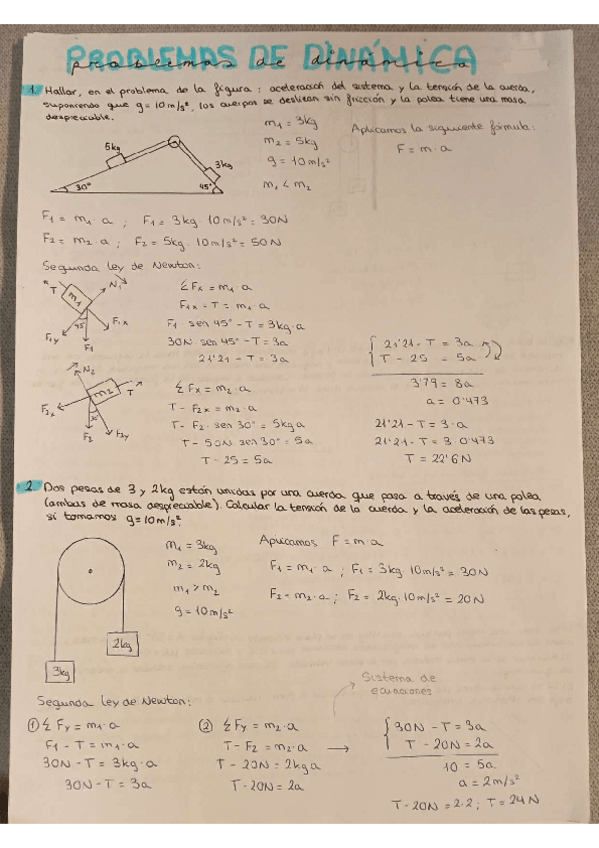 PROBLEMAS DE DINÁMICA
problemas de dinámica
1. Hallar, en el problema de la figura: aceleración del sistema y la tensión de la cuerda,
suponiendo que g=10m/s², los cuerpos se deslizan sin fricción y la polea tiene una masa
despreciable.
5kg
3kg
30°
45°
m₁ = 3kg
m₂ = 5kg
g = 10m/s²
m₁ < m₂
Aplicamos la siguiente fórmula:
F = m·a
F₁ = m₁·a ; F₁ = 3kg·10m/s² = 30N
F₂ = m₂·a ; F₂ = 5kg·10m/s² = 50N
Segunda Ley de Newton:
T
m₁
N₁
F₁y
45°
F₁x
F₁
ΣFx = m₁·a
F₁x - T = m₁·a
F₁·sen 45° - T = 3kg·a
30N·sen 45° - T = 3a
21'21 - T = 3a
N₂
m₂
T
F₂x
F₂
F₂y
ΣFx = m₂·a
T - F₂x = m₂·a
T - F₂·sen 30° = 5kg a
T - 50N sen 30° = 5a
T - 25 = 5a
21'21 - T = 3a
T - 25 = 5a
3'79 = 8a
a = 0'473
21'21 - T = 3·a
21'21 - T = 3·0'473
T = 22'6N
2. Dos pesas de 3 y 2kg están unidas por una cuerda que pasa a través de una polea
(ambas de masa despreciable). Calcular la tensión de la cuerda y la aceleración de las pesas,
si tomamos g=10m/s².
3kg
2kg
m₁ = 3kg
m₂ = 2kg
m₁ > m₂
g = 10m/s²
Aplicamos F = m·a
F₁ = m₁·a ; F₁ = 3kg·10m/s² = 30N
F₂ = m₂·a ; F₂ = 2kg·10m/s² = 20N
Segunda Ley de Newton:
Sistema de
ecuaciones
① ΣFy = m₁·a
F₁ - T = m₁·a
30N - T = 3kg·a
30N - T = 3a
② ΣFy = m₂·a
T - F₂ = m₂·a →
T - 20N = 2kg a
T - 20N = 2a
30N - T = 3a
T - 20N = 2a
10 = 5a
a = 2m/s²
T - 20N = 2·2 ; T = 24N